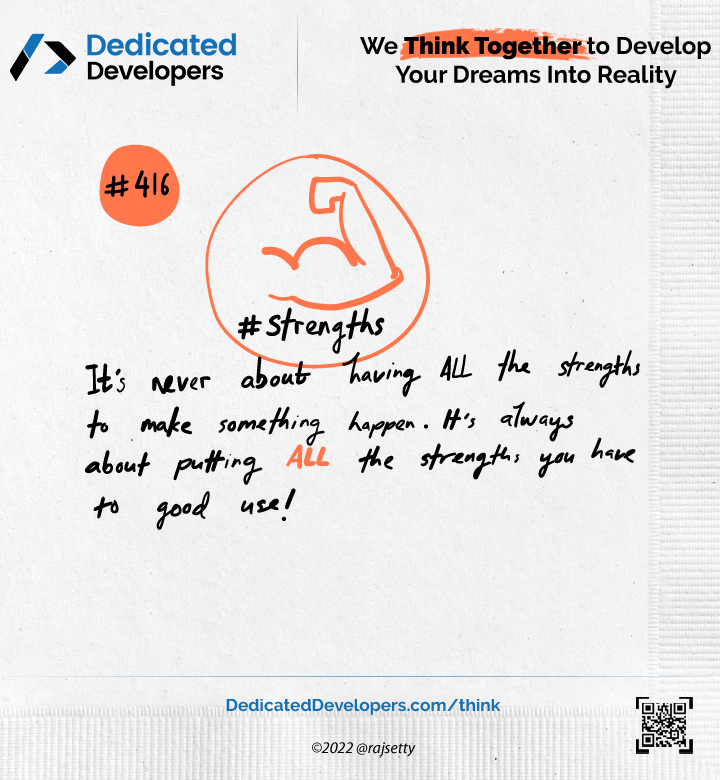 Dedicated
Developers
We Think Together to Develop
Your Dreams Into Reality
#416
#Strengths
It's never about having ALL the strengths
to make something happen. It's always
about putting ALL the strengths you have
to good use!
DedicatedDevelopers.com/think
©2022 @rajsetty